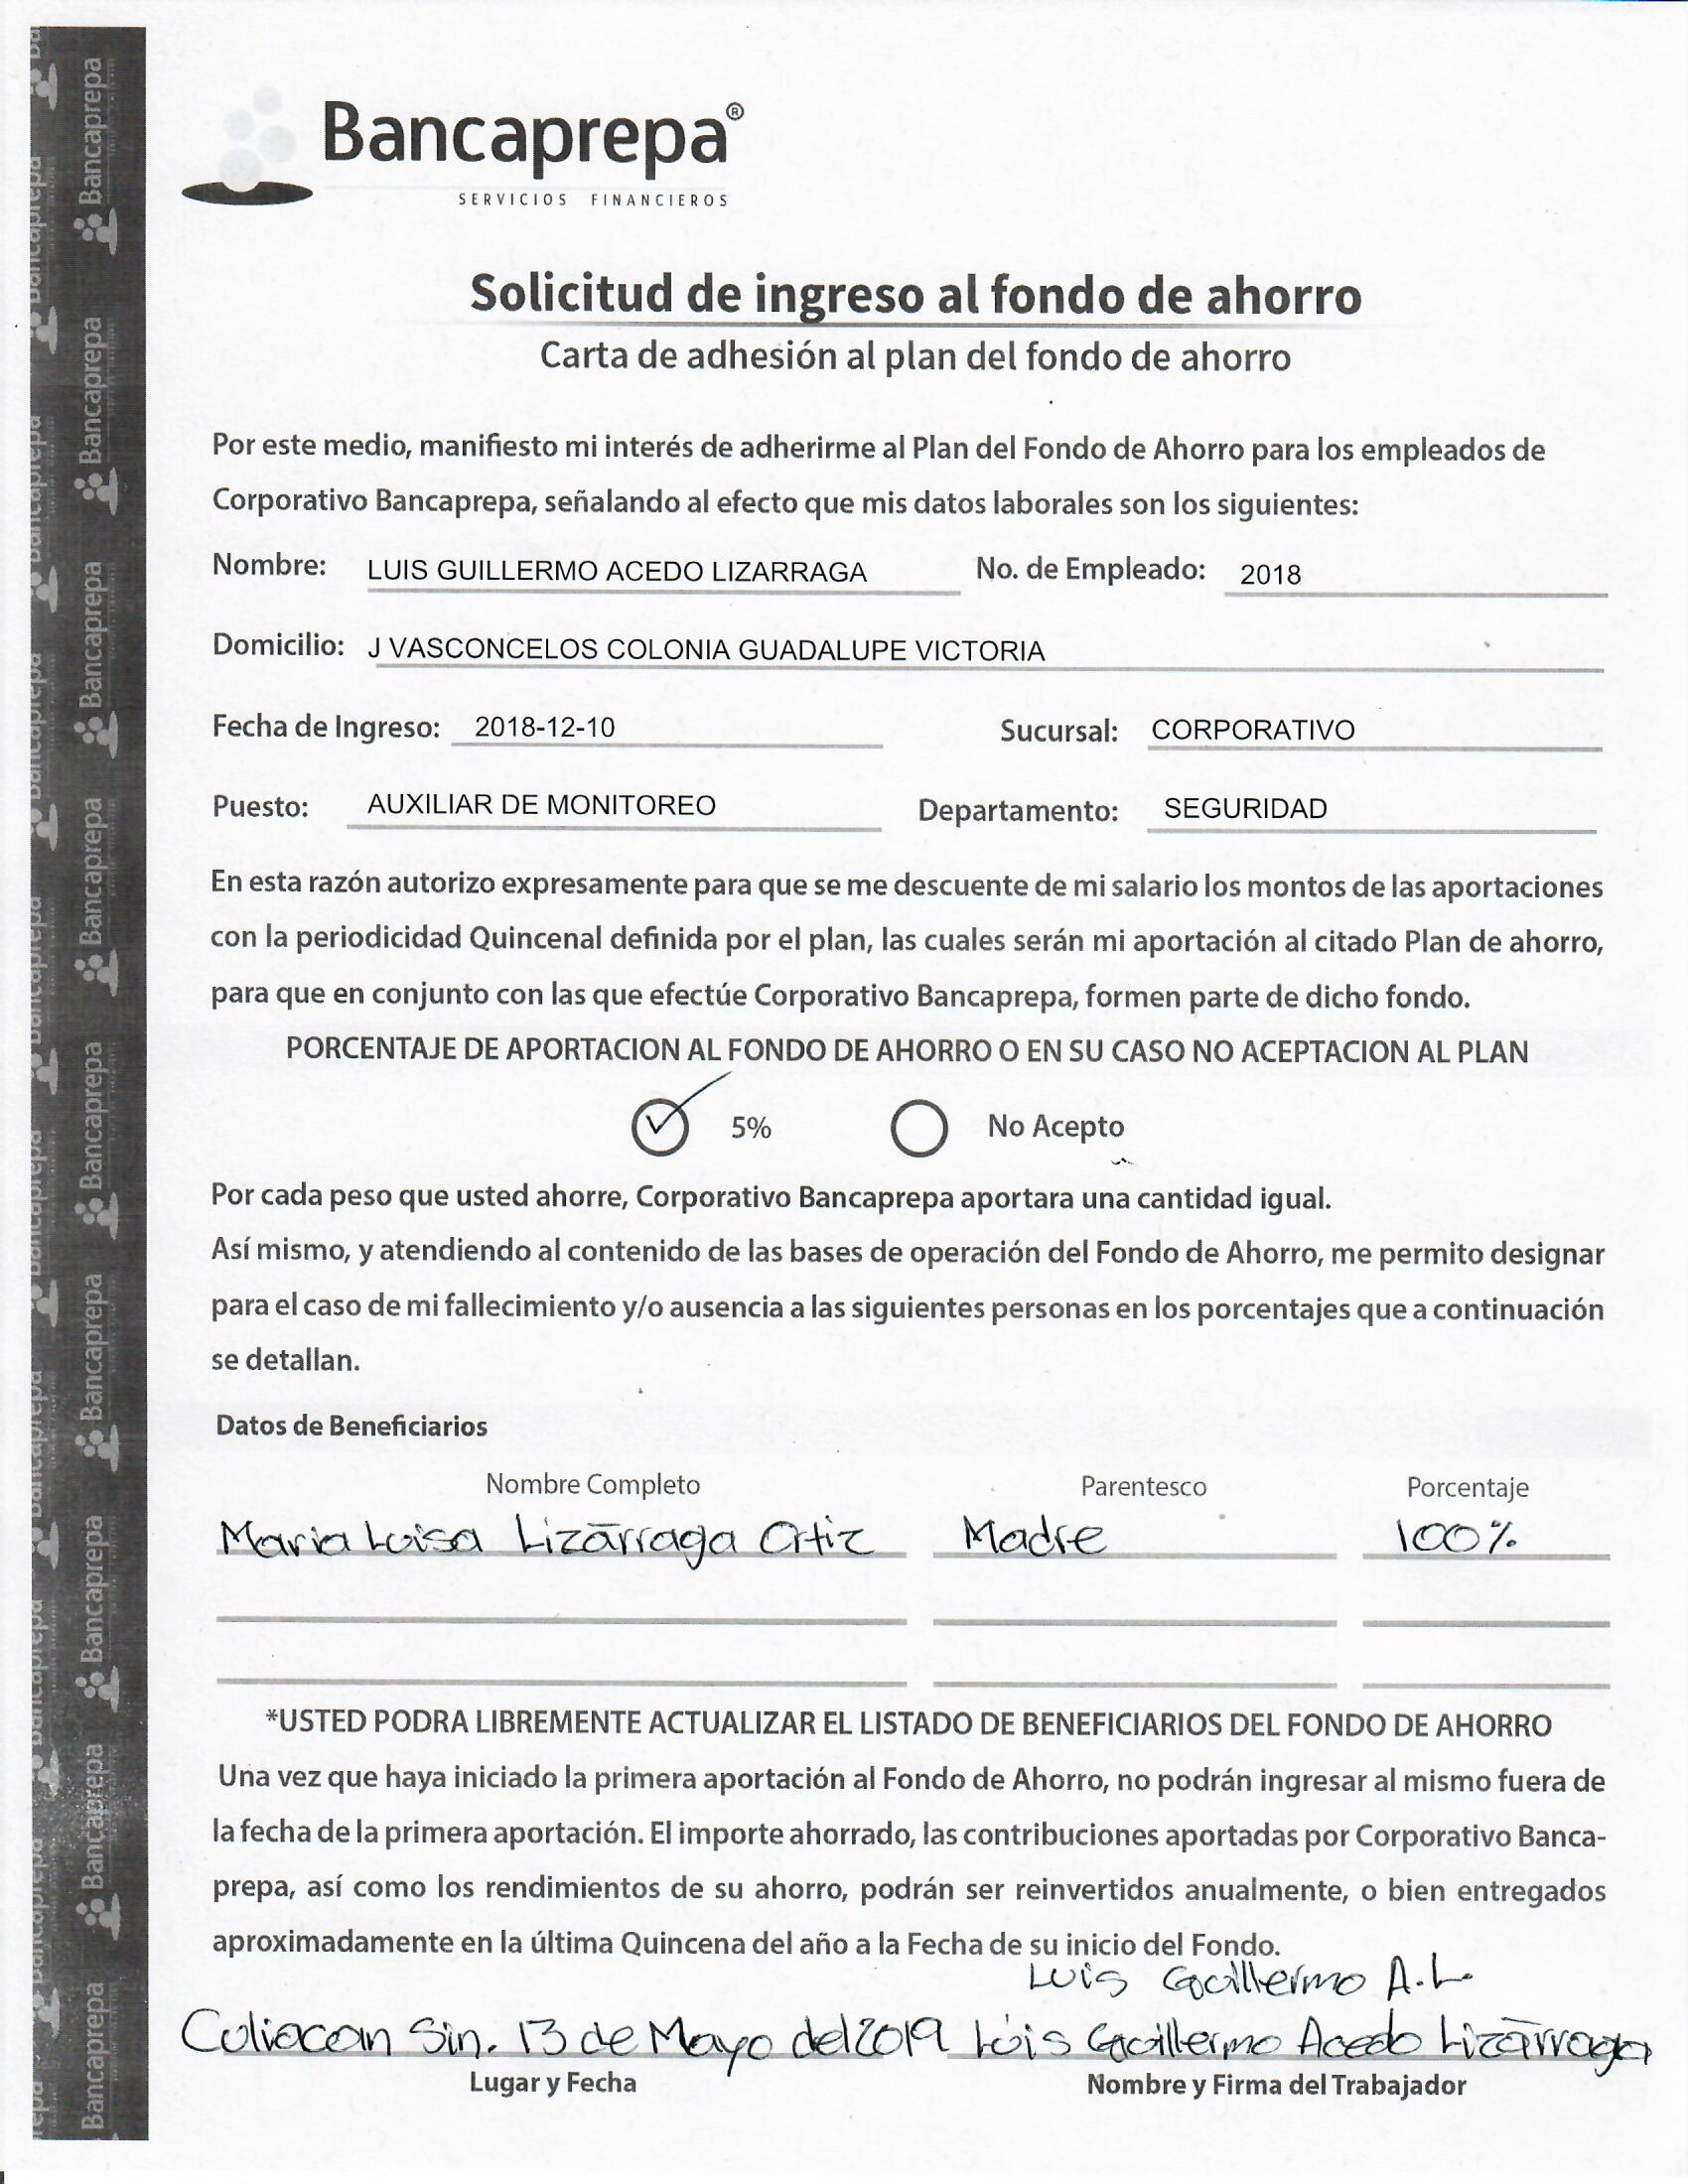 Bancaprepa®
SERVICIOS FINANCIEROS
Solicitud de ingreso al fondo de ahorro
Carta de adhesión al plan del fondo de ahorro
Por este medio, manifiesto mi interés de adherirme al Plan del Fondo de Ahorro para los empleados de
Corporativo Bancaprepa, señalando al efecto que mis datos laborales son los siguientes:
Nombre: LUIS GUILLERMO ACEDO LIZARRAGA No. de Empleado: 2018
Domicilio: J VASCONCELOS COLONIA GUADALUPE VICTORIA
Fecha de Ingreso: 2018-12-10 Sucursal: CORPORATIVO
Puesto: AUXILIAR DE MONITOREO Departamento: SEGURIDAD
En esta razón autorizo expresamente para que se me descuente de mi salario los montos de las aportaciones
con la periodicidad Quincenal definida por el plan, las cuales serán mi aportación al citado Plan de ahorro,
para que en conjunto con las que efectúe Corporativo Bancaprepa, formen parte de dicho fondo.
PORCENTAJE DE APORTACION AL FONDO DE AHORRO O EN SU CASO NO ACEPTACION AL PLAN
5% No Acepto
Por cada peso que usted ahorre, Corporativo Bancaprepa aportara una cantidad igual.
Así mismo, y atendiendo al contenido de las bases de operación del Fondo de Ahorro, me permito designar
para el caso de mi fallecimiento y/o ausencia a las siguientes personas en los porcentajes que a continuación
se detallan.
Datos de Beneficiarios
Nombre Completo Parentesco Porcentaje
Maria Luisa Lizárraga Ortiz Madre 100%
*USTED PODRA LIBREMENTE ACTUALIZAR EL LISTADO DE BENEFICIARIOS DEL FONDO DE AHORRO
Una vez que haya iniciado la primera aportación al Fondo de Ahorro, no podrán ingresar al mismo fuera de
la fecha de la primera aportación. El importe ahorrado, las contribuciones aportadas por Corporativo Banca-
prepa, así como los rendimientos de su ahorro, podrán ser reinvertidos anualmente, o bien entregados
aproximadamente en la última Quincena del año a la Fecha de su inicio del Fondo.
Luis Guillermo A.L.
Culiacan Sin. 13 de Mayo del 2019 Luis Guillermo Acedo Lizárraga
Lugar y Fecha Nombre y Firma del Trabajador
Bancaprepa
Bancaprepa
Bancaprepa
Bancaprepa
Bancaprepa
Bancaprepa
Bancaprepa
Bancaprepa
Bancaprepa